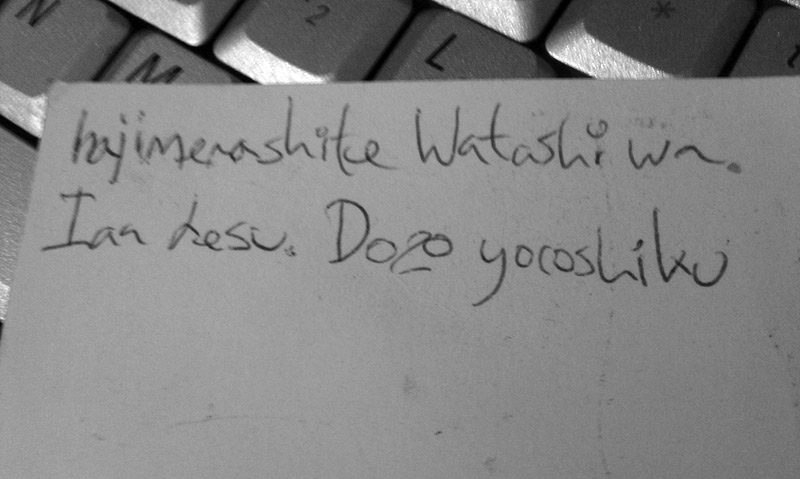 N 2 *
M L
hajimemashite Watashi wa.
Ian desu. Dozo yoroshiku